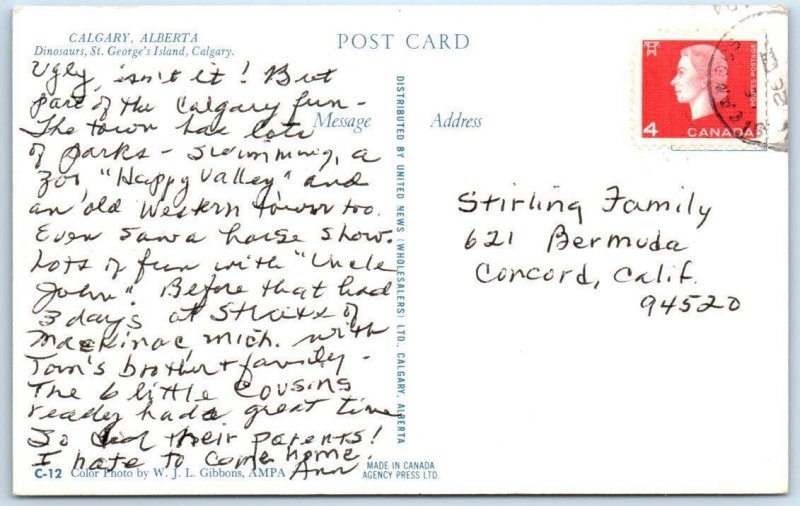 CALGARY, ALBERTA
Dinosaurs, St. George's Island, Calgary.
POST CARD
Ugly, isn't it! But
part of the Calgary fun -
The town has lots
of parks - swimming, a
zoo, "Happy Valley" and
an old Western town too.
Even saw a horse show.
Lots of fun with "Uncle
John". Before that had
3 days at Straits of
Mackinac, Mich. with
Tom's brother & family -
The 6 little cousins
really had a great time
So did their parents!
I hate to come home.
Ann
Message
Address
C-12 Color Photo by W. J. L. Gibbons, AMPA
DISTRIBUTED BY UNITED NEWS (WHOLESALERS) LTD., CALGARY, ALBERTA
MADE IN CANADA
AGENCY PRESS LTD.
4 CANADA
POSTES POSTAGE
Stirling Family
621 Bermuda
Concord, Calif.
94520